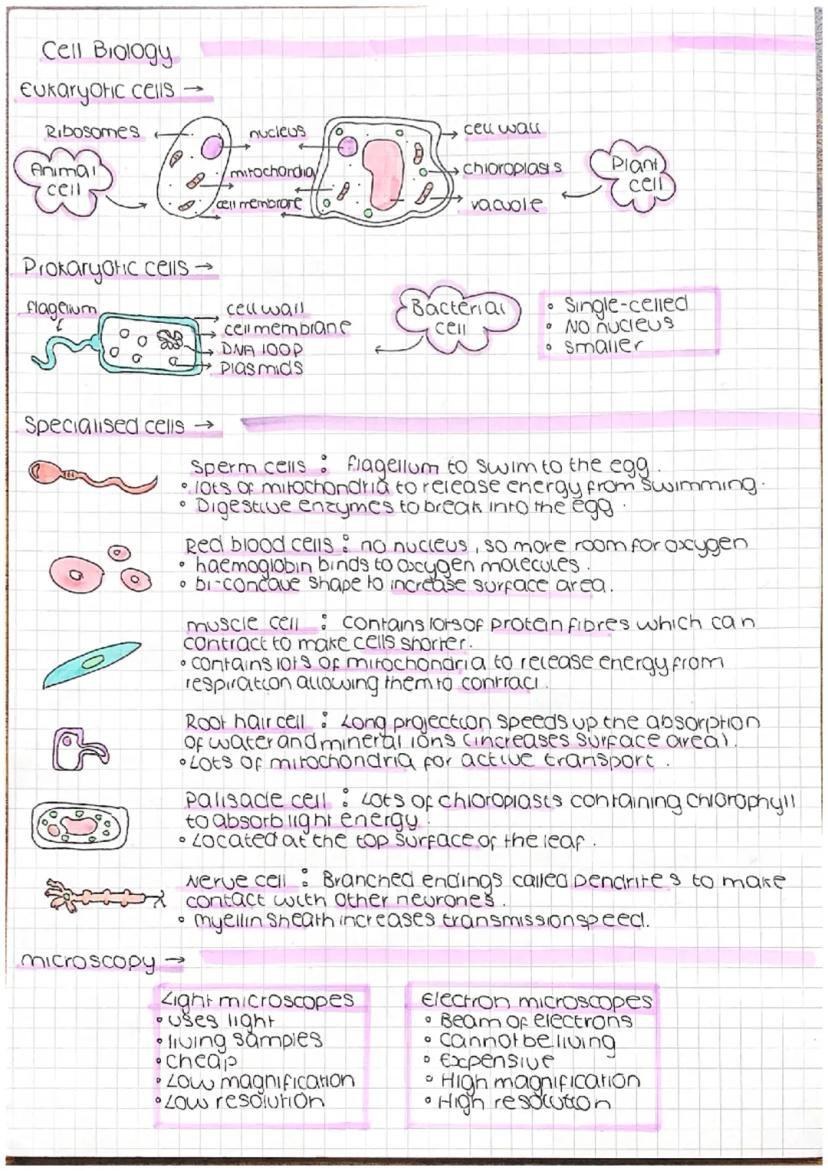 Cell Biology
Eukaryotic cells →
Ribosomes
nucleus
cell wall
Animal cell
mitochondia
chloroplasts
Plant cell
cell membrane
vacuole
Prokaryotic cells →
flagellum
cell wall
cell membrane
DNA loop
plasmids
Bacterial cell
• Single-celled
• No nucleus
• smaller
Specialised cells →
Sperm cells : flagellum to swim to the egg.
• lots of mitochondria to release energy from swimming.
• Digestive enzymes to break into the egg.
Red blood cells : no nucleus, so more room for oxygen
• haemoglobin binds to oxygen molecules.
• bi-concave shape to increase surface area.
muscle cell : contains lots of protein fibres which can
contract to make cells shorter.
• contains lots of mitochondria to release energy from
respiration allowing them to contract.
Root hair cell : Long projection speeds up the absorption
of water and mineral ions (increases surface area).
• Lots of mitochondria for active transport.
Palisade cell : Lots of chloroplasts containing chlorophyll
to absorb light energy.
• Located at the top surface of the leaf.
Nerve cell : Branched endings called Dendrites to make
contact with other neurones.
• myellin sheath increases transmission speed.
microscopy →
Light microscopes
• uses light
• living samples
• cheap
• Low magnification
• Low resolution
Electron microscopes
• Beam of electrons
• cannot be living
• Expensive
• High magnification
• High resolution